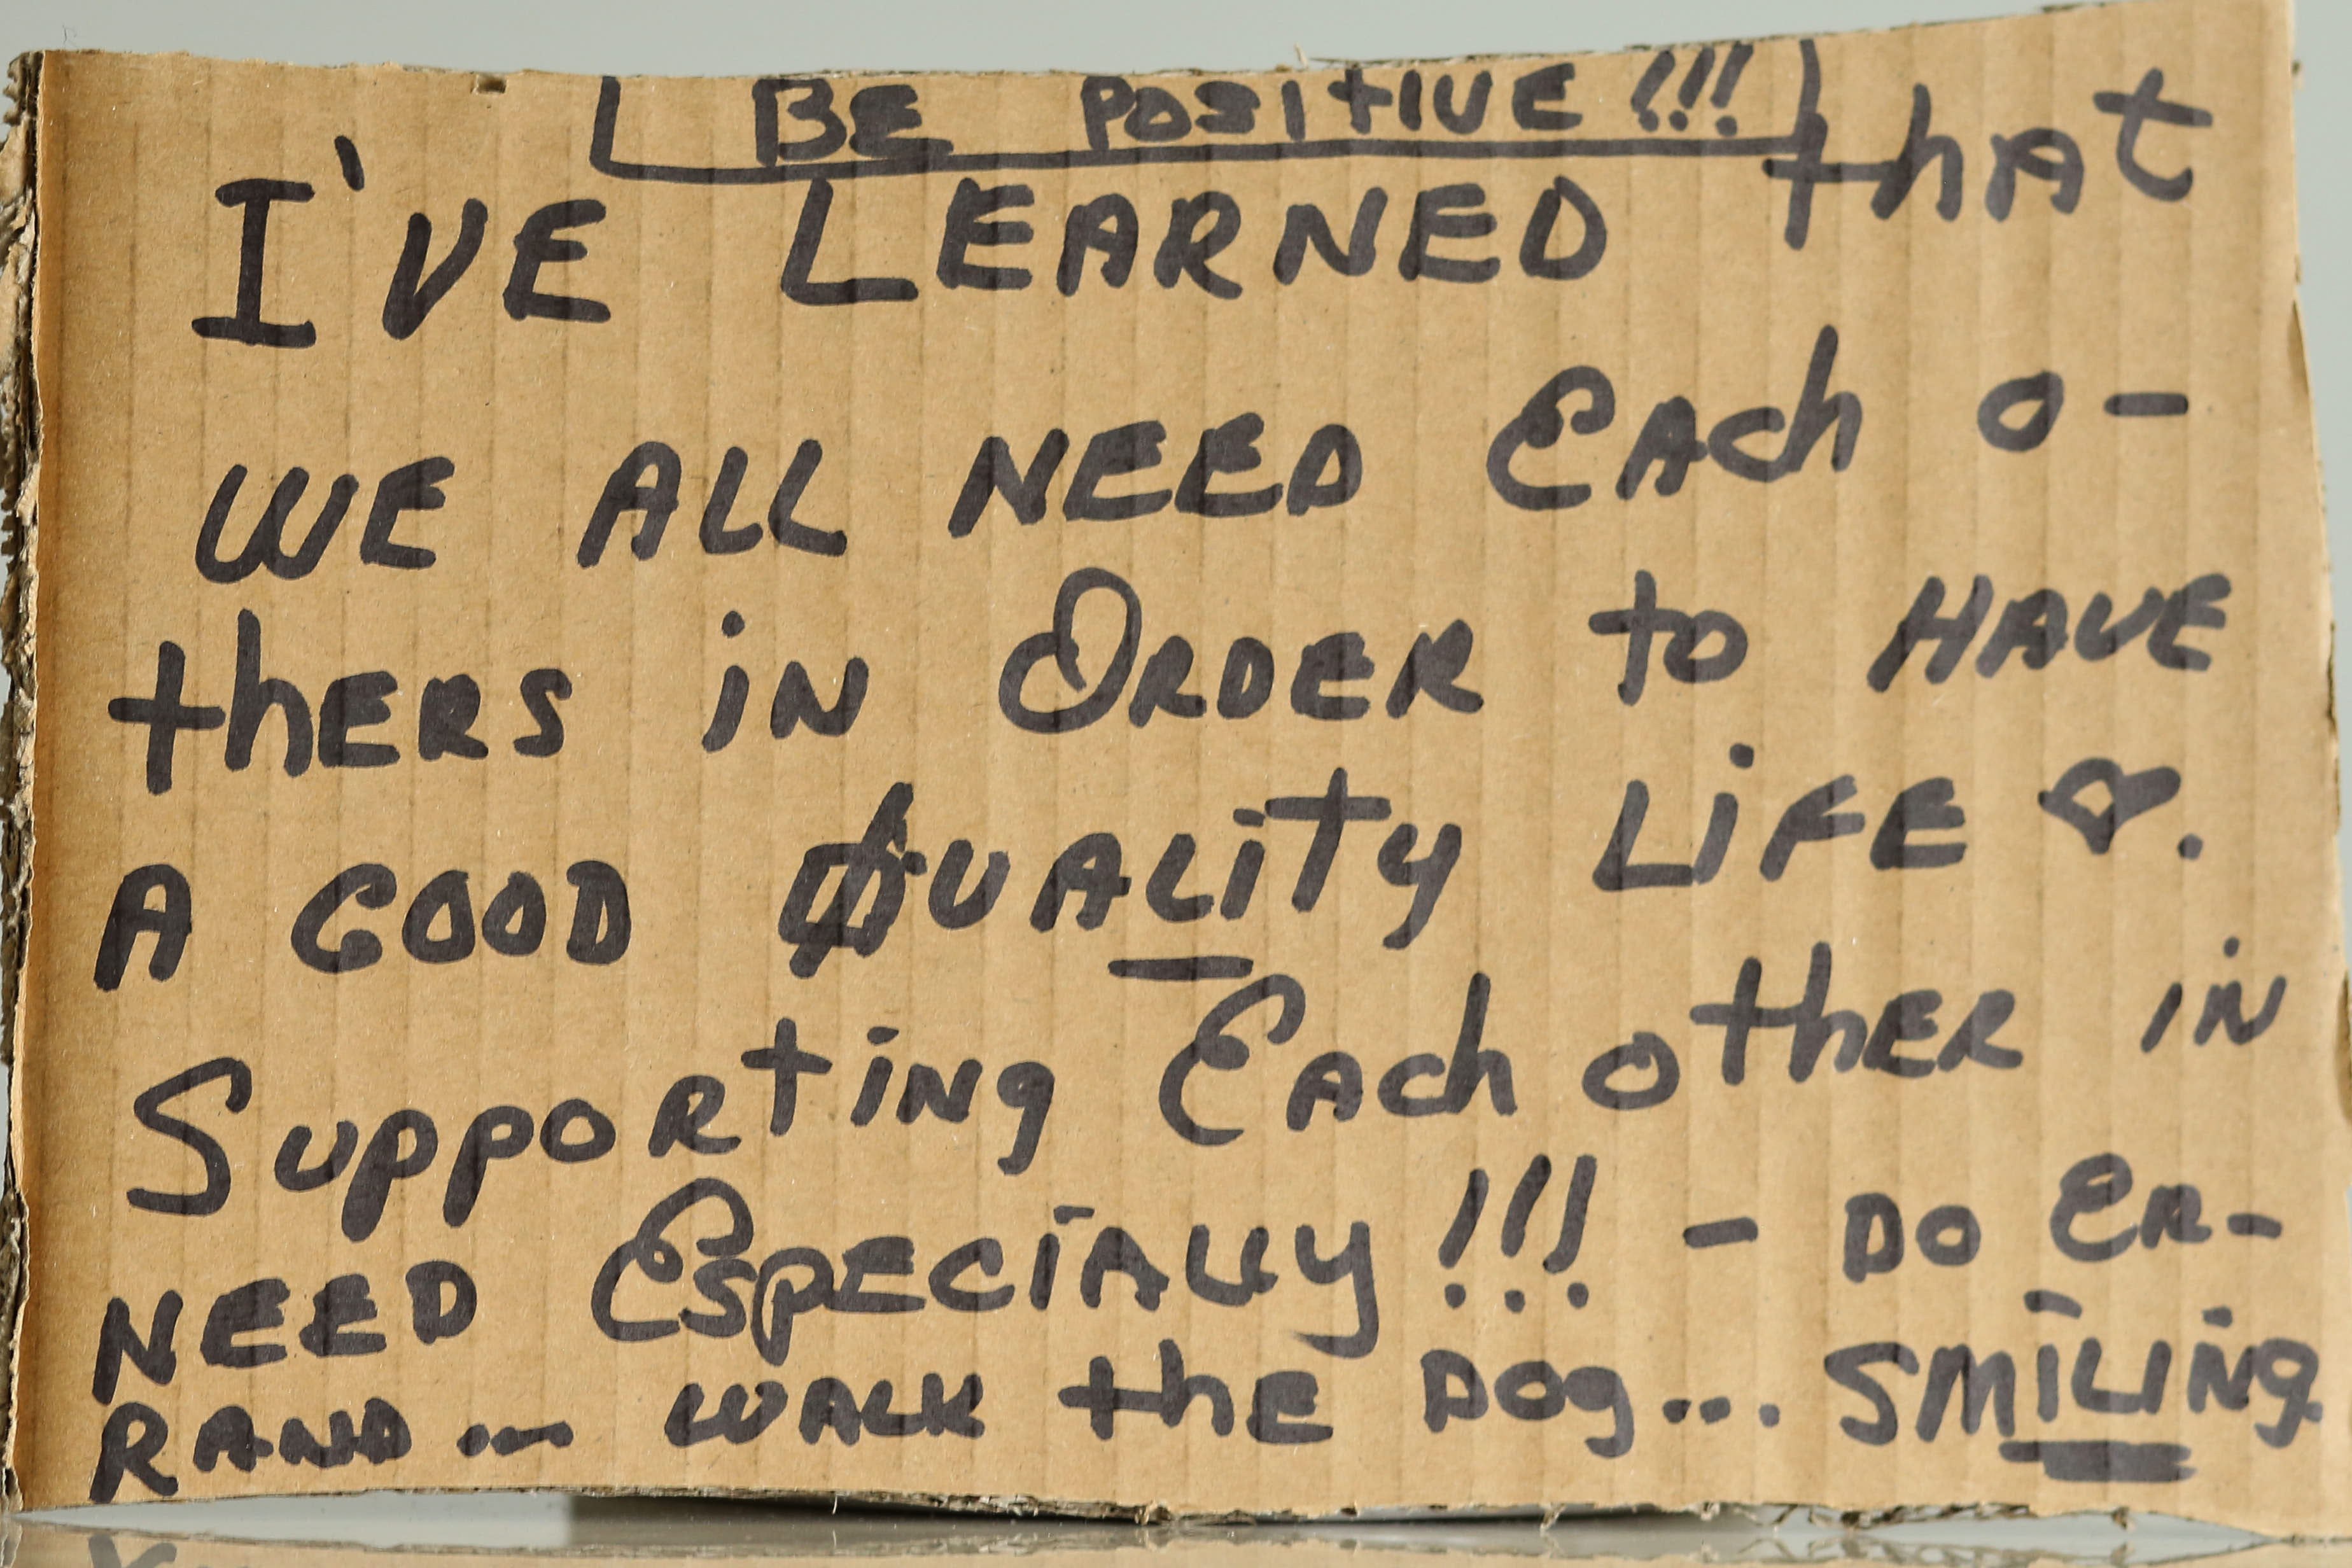 BE POSITIVE!!!
I'VE LEARNED that
WE ALL NEED EACh O-
thERS iN ORDER to HAVE
A GOOD QUALity LiFE ♡.
SuppoRtiNg EACh othER iN
NEED ESpECIALLY!!! - DO ER-
RAND... WALK thE DOg... SMILiNg